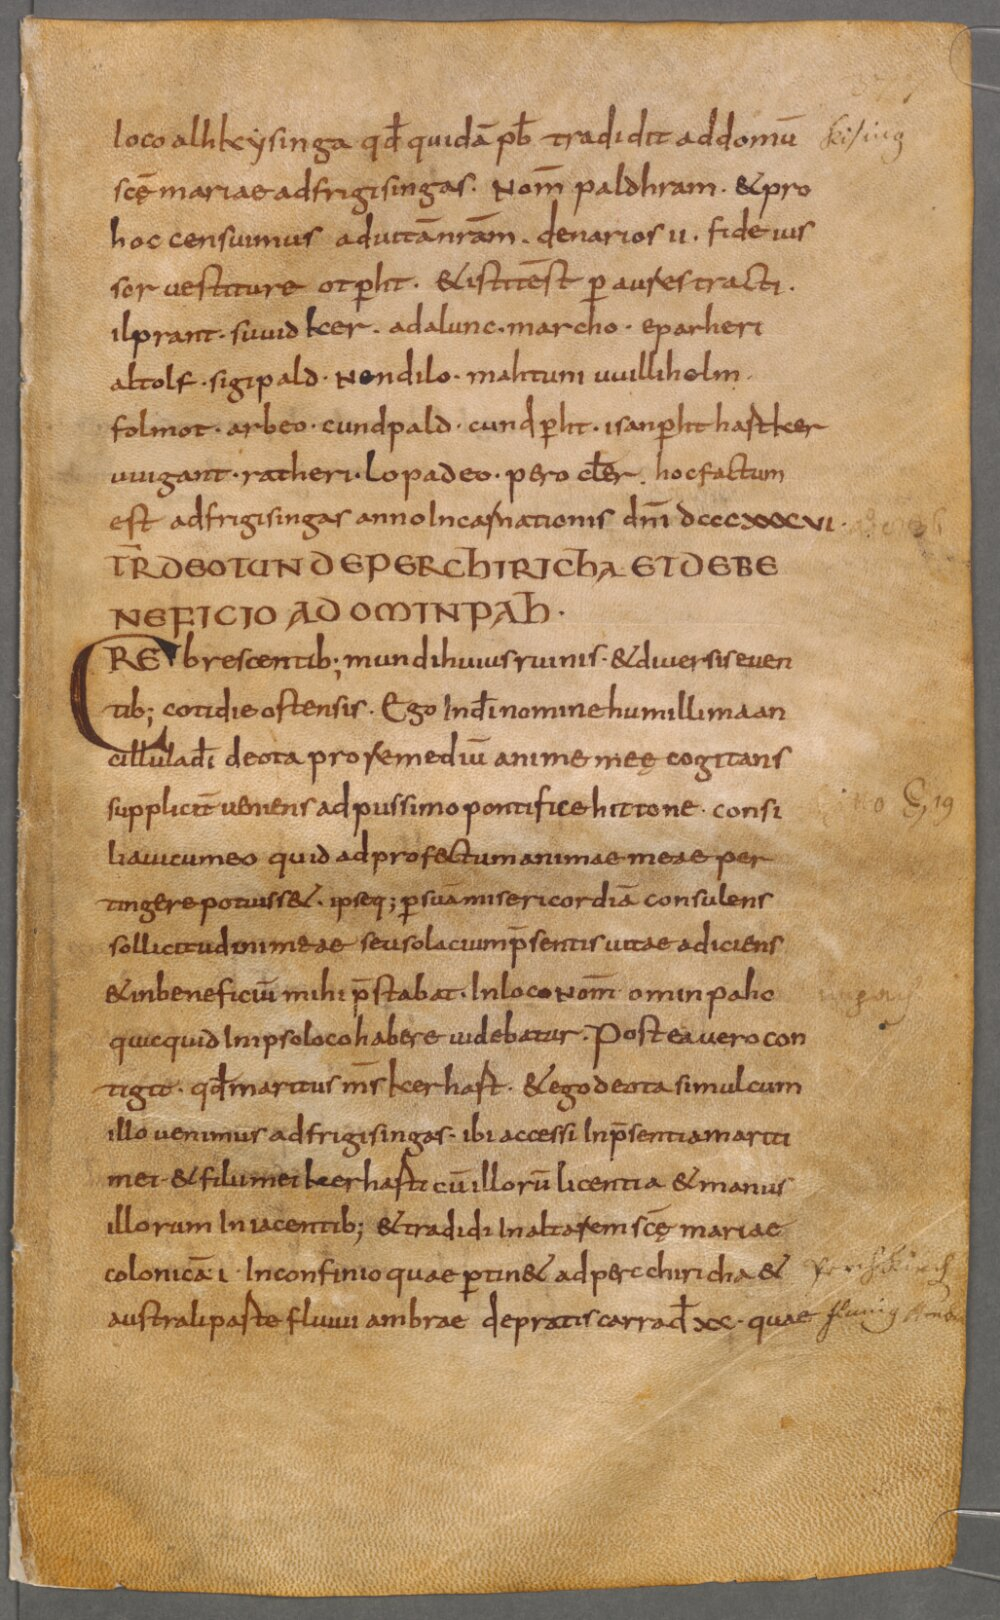 loco alhkeysinga qđ quidā pƀ tradidit ad domū kising
scę mariae ad frigisingas. Nom̄ paldhram. & pro
hoc censuimus ad uitā nrām. denarios ii. fideius
sor uestiture otp̱ht. & isti test̄ p̱ aures tracti.
ilprant. suuidker. adalunc. marcho. eparheri
altolf. sigipald. Nendilo. mahtuni uuillihelm.
folmot. arbeo. cundpald. cundp̱ht. isanp̱ht hastker
uuigant. ratheri. lopadeo. pero cler̄. hoc factum
est ad frigisingas anno Incarnationis dn̄i dcccxxxvi.
TR̄ DEOTUN DE PERCHIRICHA ET DE BE
NEFICIO AD OMINPAH.
CREbrescentib; mundi huius ruinis. & diuersis euen
tib; cotidie ostensis. Ego In dī nomine humillima an
cillula dī deota pro remediū anime meę cogitans
supplicit̄ ueniens ad piissimo pontifice hittone. consi
liaui cum eo quid ad profectum animae meae per
tingere potuiss&. ipseq; p̱ suā misericordiā consulens
sollicitudini meae seu solacium p̄sentis uitae adiciens
& in beneficiū mihi p̄stabat. In loco Nom̄ ominpaho
quicquid In ipso loco habere uidebatur. Postea uero con
tigit. qđ maritus ms̄ kerhast. & ego deota simul cum
illo uenimus ad frigisingas. ibi accessi In p̄sentia mariti
mei. & filii mei kerhasti cū illorū licentia & manus
illorum In iacentib; & tradidi In altarem scę mariae
colonicā i. In confinio quae p̱tin& ad percchiricha & Perchkirch
australi parte fluuii ambrae de pratis carrađ xx. quae